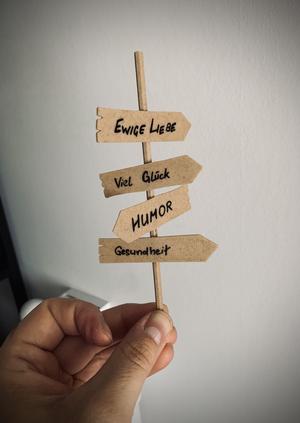 EWIGE LIEBE
Viel Glück
HUMOR
Gesundheit